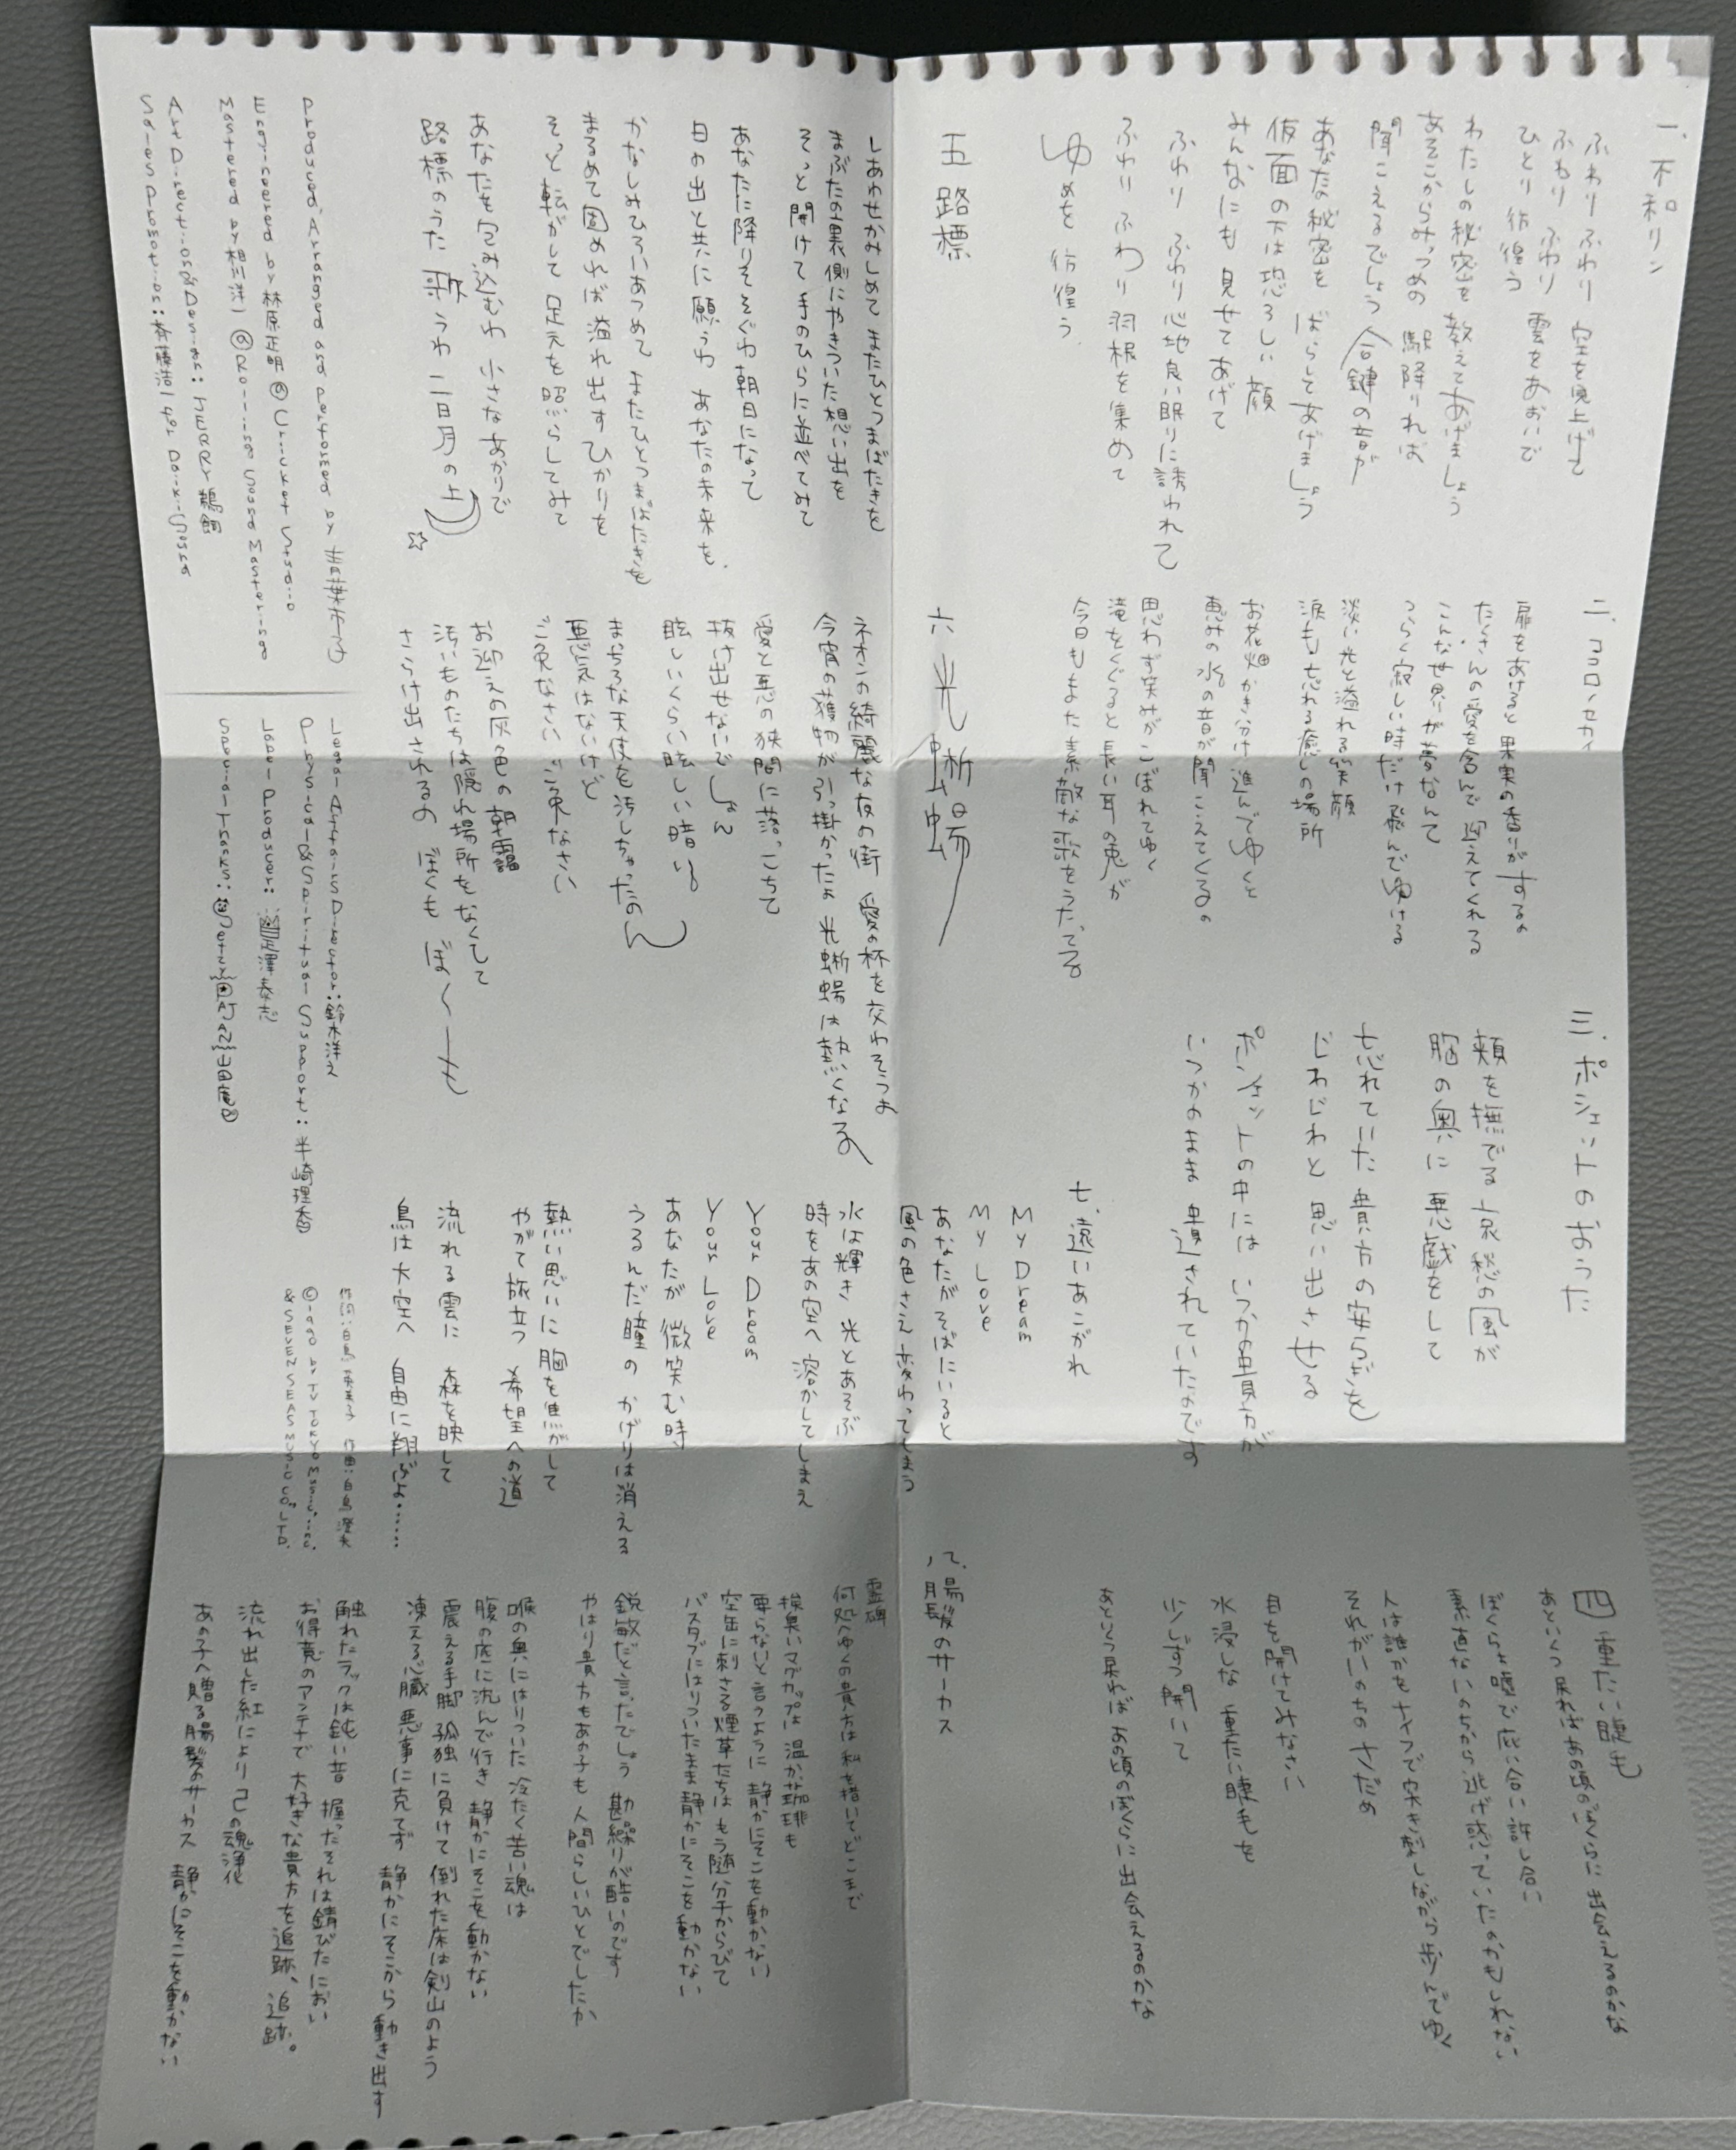 一.不和リン
ふわりふわり 空を見上げて
ふわり ふわり 雲をあおいで
ひとり 彷徨う
わたしの秘密を 教えてあげましょう
あそこからみっつめの 駅降りれば
聞こえるでしょう 合鍵の音が
あなたの秘密を ばらしてあげましょう
仮面の下は恐ろしい顔
みんなにも 見せてあげて
ふわり ふわり 心地良い眠りに誘われて
ふわり ふわり 羽根を集めて
ゆめを 彷徨う
二.ココロノセカイ
扉をあけると果実の香りがするの
たくさんの愛を含んで 迎えてくれる
こんな世界が夢なんて
つらく寂しい時だけ飛んでゆける
淡い光と溢れる笑顔
涙も忘れる癒しの場所
お花畑かき分け進んでゆくと
恵みの水の音が聞こえてくるの
思わず笑みがこぼれてゆく
滝をくぐると長い耳の兎が
今日もまた素敵な歌をうたってる
三.ポシェットのおうた
頬を撫でる哀愁の風が
胸の奥に悪戯をして
忘れていた 貴方の安らぎを
じわじわと 思い出させる
ポシェットの中には いつかの貴方が
いつかのまま 遺されていたのです
四 重たい睫毛
あといくつ呆ればあの頃のぼくらに 出会えるのかな
ぼくらは嘘で庇い合い許し合い
素直ないのちから逃げ惑っていたのかもしれない
人は誰かをナイフで突き刺しながら歩んでゆく
それがいのちの さだめ
目を開けてみなさい
水浸しな 重たい睫毛を
少しずつ開いて
あといくつ呆ればあの頃のぼくらに出会えるのかな
五 路標
しあわせかみしめて またひとつまばたきを
まぶたの裏側にやきついた想い出を
そっと開けて 手のひらに並べてみて
あなたに降りそそぐわ 朝日になって
日の出と共に願うわ あなたの未来を.
かなしみひろいあつめて またひとつまばたきを
まるめて固めれば溢れ出すひかりを
そっと転がして 足元を照らしてみて
あなたを包み込むわ 小さなあかりで
路標のうた 歌うわ 三日月の上
六 光蜥蜴
ネオンの綺麗な夜の街 愛の杯を交わそうよ
今宵の獲物が引っ掛かったよ 光蜥蜴は熱くなる
愛と悪の狭間に落っこちて
抜け出せないでしょん
眩しいくらい眩しい暗い
まっちろな天使を汚しちゃったのん
悪気はないけど
ご免なさい ご免なさい
お迎えの灰色の朝靄
汚いものたちは隠れ場所をなくして
さらけ出されるの ぼくも ぼ〜くも
七.遠いあこがれ
My Dream
My Love
あなたがそばにいると
風の色さえ 変わってしまう
水は輝き 光とあそぶ
時をあの空へ 溶かしてしまえ
Your Dream
Your Love
あなたが 微笑む時
うるんだ瞳の かげりは消える
熱い思いに胸を焦がして
やがて旅立つ 希望への道
流れる雲に 森を映して
鳥は大空へ 自由に翔ぶよ……
作詞:白鳥英美子 作曲:白鳥澄夫
©1990 by TV TOKYO Music, inc.
& SEVEN SEAS MUSIC CO., LTD.
八.腸髪のサーカス
霊碑
何処へゆくの貴方は 私を措いてどこまで
挨臭いマグカップは 温か珈琲も
要らないと言うように 静かにそこを動かない
空缶に刺さる煙草たちは もう随分干からびて
バスタブにはりついたまま 静かにそこを動かない
鋭敏だと言ったでしょう 勘繰りが酷いのです
やはり貴方もあの子も 人間らしいひとでしたか
喉の奥にはりついた 冷たく苦い魂は
腹の底に沈んで行き 静かにそこを動かない
震える手脚 孤独に負けて 倒れた床は剣山のよう
凍える心臓 悪事に克てず 静かにそこから 動き出す
触れたラックは鈍い音 握ったそれは錆びたにおい
お得意のアンテナで 大好きな貴方を追跡、追跡。
流れ出した紅により 己の魂浄化
あの子へ贈る腸髪のサーカス 静かにそこを動かない
Produced, Arranged and Performed by 青葉市子
Engineered by 林原正明 @ Cricket Studio
Mastered by 相川洋一 @ Rolling Sound Mastering
Art Direction & Design: JERRY鵜飼
Sales Promotion: 斉藤浩一 for Daiki Sound
Legal Affairs Director: 鈴木洋之
Physical & Spiritual Support: 半崎理香
Label Producer:
Special Thanks: 山田庵